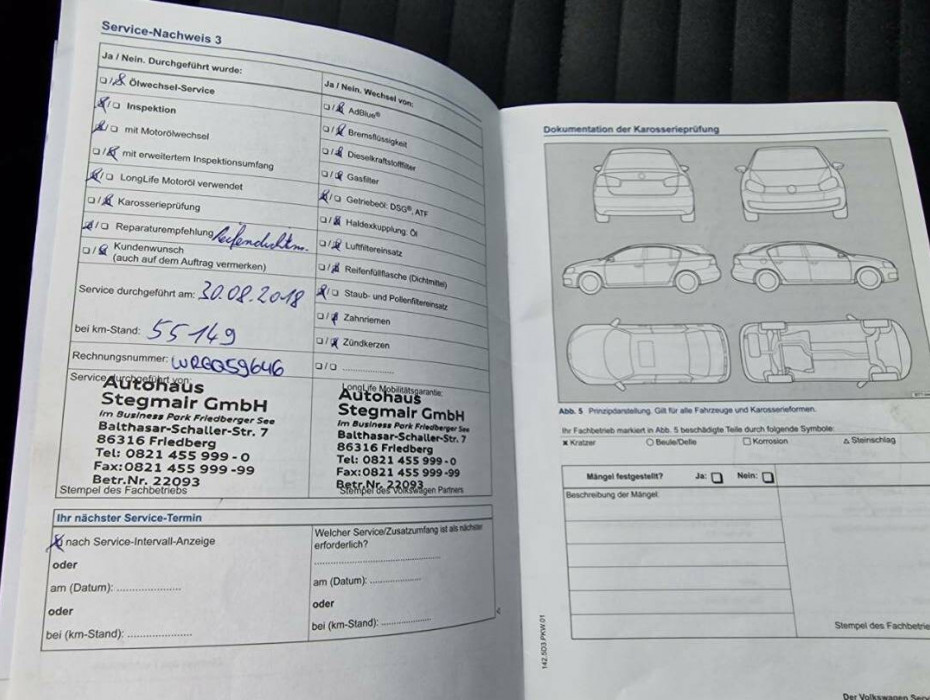 Service-Nachweis 3
Ja / Nein. Durchgeführt wurde:
☐/☒ Ölwechsel-Service
☒/☐ Inspektion
☒/☐ mit Motorölwechsel
☐/☒ mit erweitertem Inspektionsumfang
☒/☐ LongLife Motoröl verwendet
☐/☒ Karosserieprüfung
☒/☐ Reparaturempfehlung
☐/☒ Kundenwunsch
(auch auf dem Auftrag vermerken)
Service durchgeführt am: 30.08.2018
bei km-Stand: 55149
Rechnungsnummer: WRGQ59646
Service durchgeführt von:
Autohaus
Stegmair GmbH
Im Business Park Friedberger See
Balthasar-Schaller-Str. 7
86316 Friedberg
Tel: 0821 455 999 - 0
Fax: 0821 455 999 -99
Betr.Nr. 22093
Stempel des Fachbetriebs
Ja / Nein. Wechsel von:
☐/☒ AdBlue®
☐/☒ Bremsflüssigkeit
☐/☒ Dieselkraftstofffilter
☐/☒ Gasfilter
☒/☐ Getriebeöl: DSG®, ATF
☐/☒ Haldexkupplung: Öl
☐/☒ Luftfiltereinsatz
☐/☒ Reifenfüllflasche (Dichtmittel)
☒/☐ Staub- und Pollenfiltereinsatz
☐/☒ Zahnriemen
☐/☒ Zündkerzen
☐/☐ ....................
LongLife Mobilitätsgarantie:
Autohaus
Stegmair GmbH
Im Business Park Friedberger See
Balthasar-Schaller-Str. 7
86316 Friedberg
Tel: 0821 455 999 - 0
Fax: 0821 455 999 -99
Betr.Nr. 22093
Stempel des Volkswagen Partners
Ihr nächster Service-Termin
☒ nach Service-Intervall-Anzeige
oder
am (Datum): ....................
oder
bei (km-Stand): ....................
Welcher Service/Zusatzumfang ist als nächster
erforderlich?
........................................
am (Datum): ................
oder
bei (km-Stand): ................
Dokumentation der Karosserieprüfung
Abb. 5 Prinzipdarstellung. Gilt für alle Fahrzeuge und Karosserieformen.
Ihr Fachbetrieb markiert in Abb. 5 beschädigte Teile durch folgende Symbole:
✖ Kratzer ○ Beule/Delle □ Korrosion △ Steinschlag
Mängel festgestellt? Ja: ☐ Nein: ☐
Beschreibung der Mängel:
Stempel des Fachbetrie
142.5D3.PKW.01
Der Volkswagen Serv